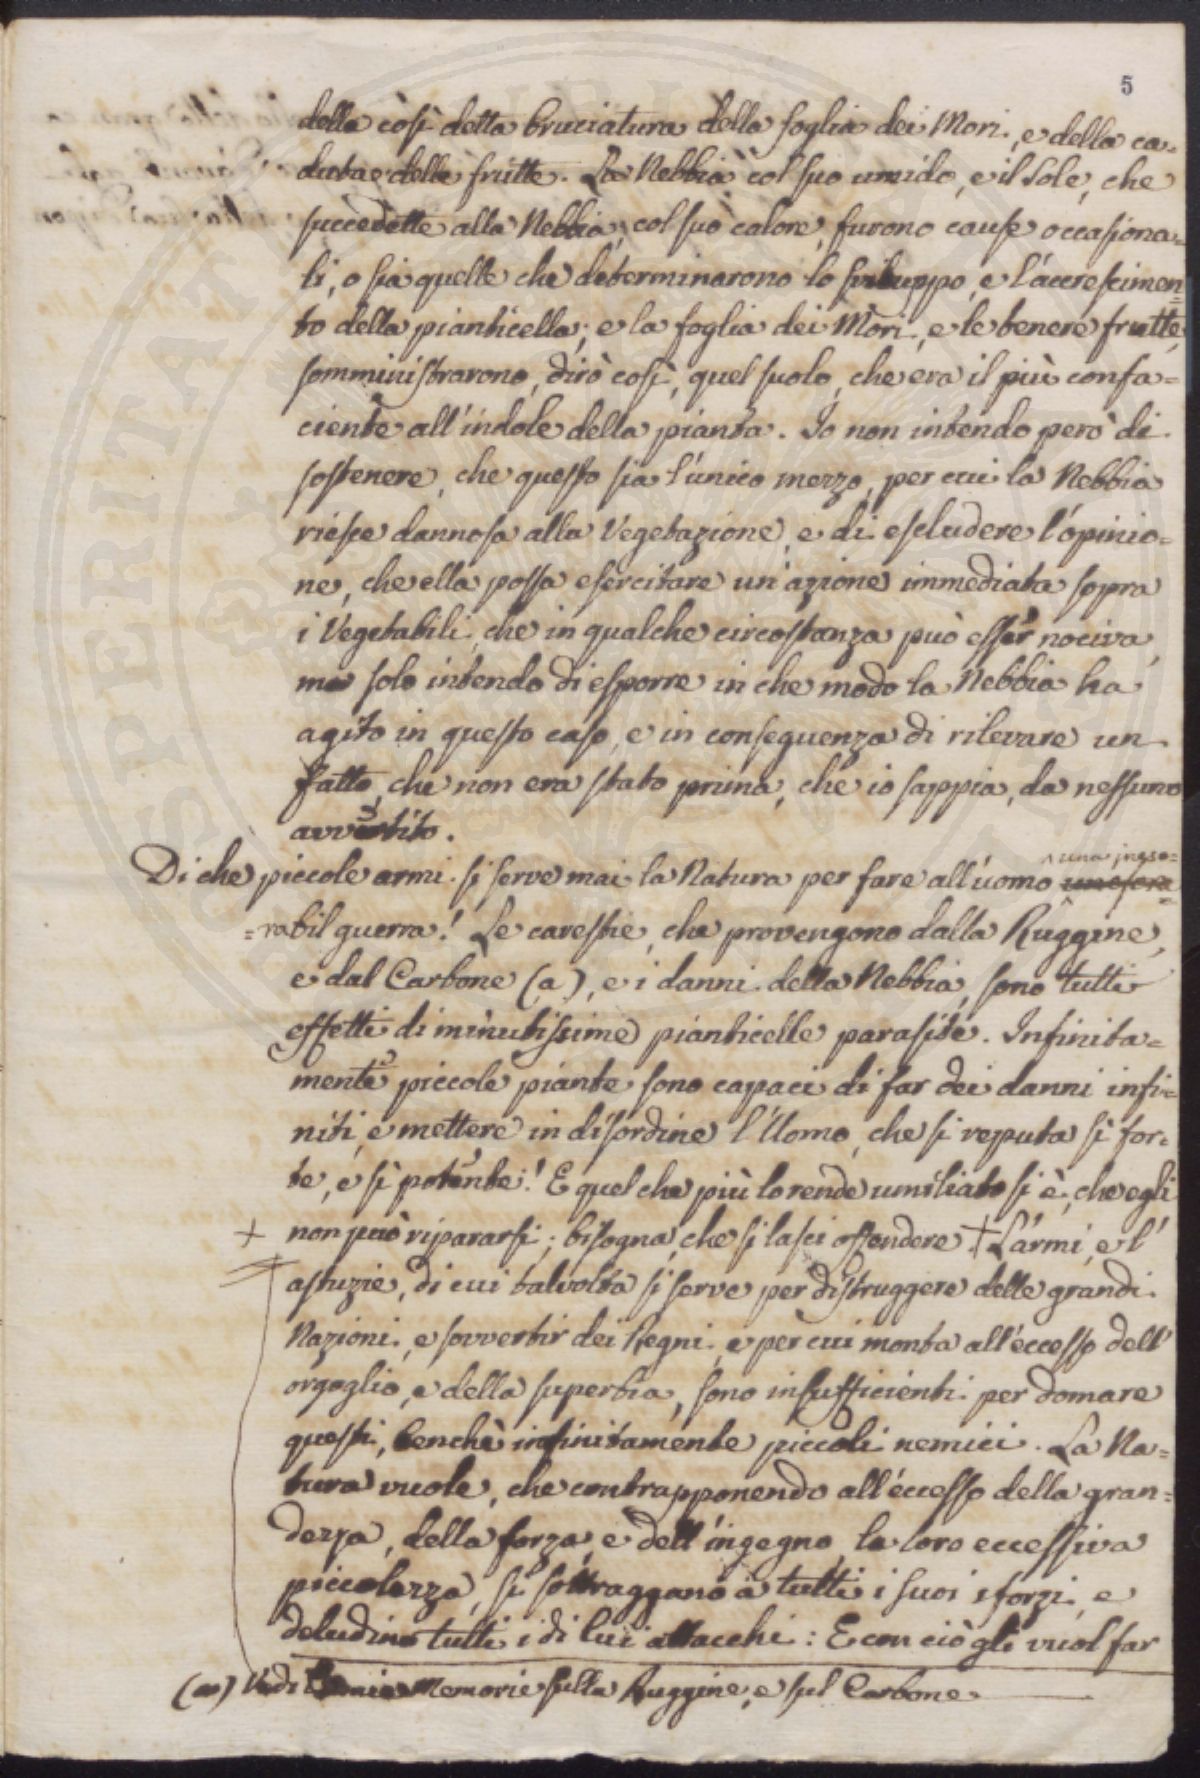 5
della così detta bruciatura della foglia dei Mori, e della ca=
duta delle frutte. La Nebbia col suo umido, e il sole, che
succedette alla Nebbia, col suo calore, furono cause occasiona=
li, o sia quelle che determinarono lo sviluppo, e l'accrescimen=
to della pianticella; e la foglia dei Mori, e le tenere frutte,
somministrarono, dirò così, quel suolo, che era il più confa=
ciente all'indole della pianta. Io non intendo però di
sostenere, che questo sia l'unico mezzo, per cui la Nebbia
riesce dannosa alla Vegetazione, e di escludere l'opinio=
ne, che ella possa esercitare un'azione immediata sopra
i Vegetabili, che in qualche circostanza può esser nociva,
ma solo intendo di esporre in che modo la Nebbia ha
agito in questo caso, e in conseguenza di rilevare un
fatto, che non era stato prima, che io sappia, da nessuno
avvertito.
una ineso=
Di che piccole armi si serve mai la Natura per fare all'uomo
=rabil guerra! Le carestie, che provengono dalla Ruggine,
e dal Carbone (a), e i danni della Nebbia, sono tutti
effetti di minutissime pianticelle parasite. Infinita=
mente piccole piante sono capaci di far dei danni infi=
niti, e mettere in disordine l'Uomo, che si reputa sì for=
te, e sì potente! E quel che più lo rende umiliato si è, che egli
+ non può ripararsi; bisogna, che si lasci offendere + L'armi, e l'
astuzie, di cui talvolta si serve per distruggere delle grandi
Nazioni, e sovvertir dei Regni, e per cui monta all'eccesso dell'
orgoglio, e della superbia, sono insufficienti per domare
questi, benchè infinitamente piccoli nemici. La Na=
tura vuole, che contrapponendo all'eccesso della gran=
dezza, della forza, e dell'ingegno, la loro eccessiva
piccolezza, si sottraggano a tutti i suoi sforzi, e
deludino tutti i di lui attacchi: E con ciò gli vuol far
(a) Vedi Memorie sulla Ruggine, e sul Carbone.